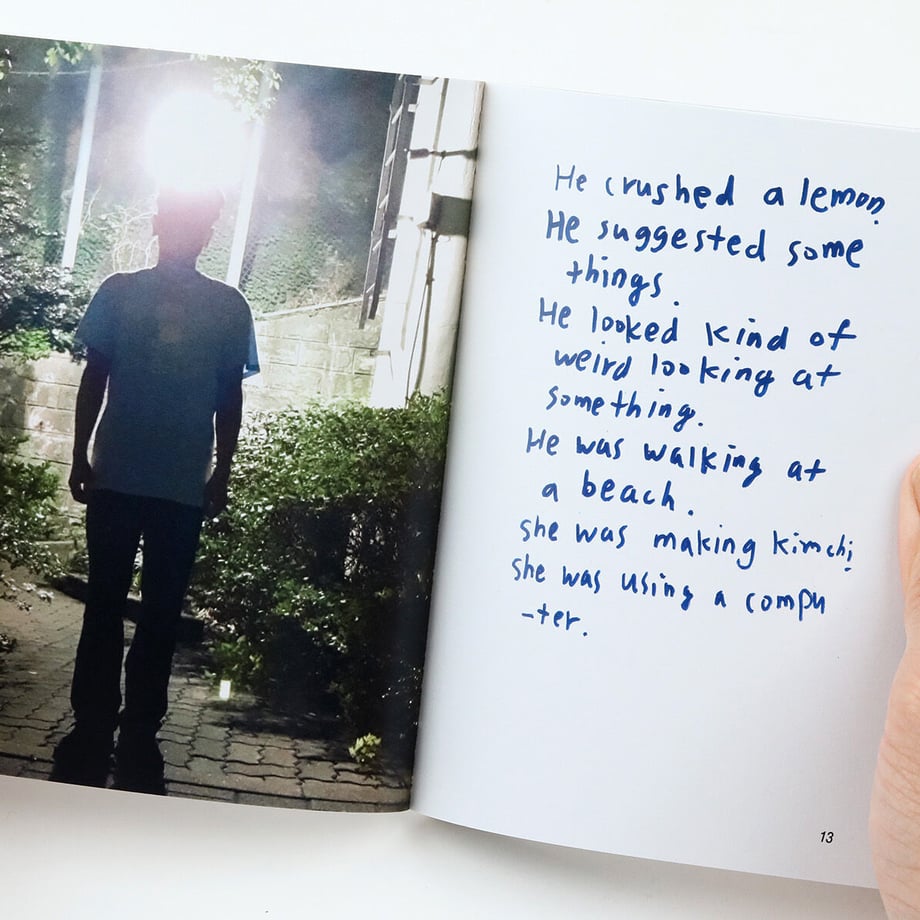 He crushed a lemon.
He suggested some
things.
He looked kind of
weird looking at
something.
He was walking at
a beach.
she was making kimchi.
she was using a compu
-ter.
13